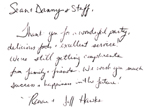 Sean, Danny & Staff,
Thank you for a wonderful party,
delicious food & excellent service!
We're still getting compliments
from family & friends. We wish you much
success & happiness in the future.
& Jeff